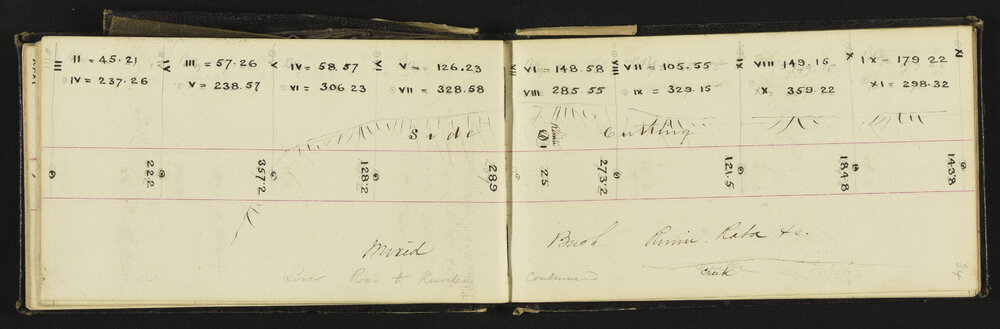 III II = 45.21 IV III = 57.26 V IV = 58.57 VI V = 126.23 VII VI = 148.58 VIII VII = 105.55 IX VIII 149.15 X IX = 179 22 XI
IV = 237.26 V = 238.57 VI = 306 23 VII = 328.58 VIII 285 55 IX = 329.15 X 359.22 XI = 298.32
Side Cutting
222 357.2 128.2 289 25 273.2 121.5 184.8 143.8
Mixed Bush Rimu Rata &c.
Creek
Lower Road to Continued
34